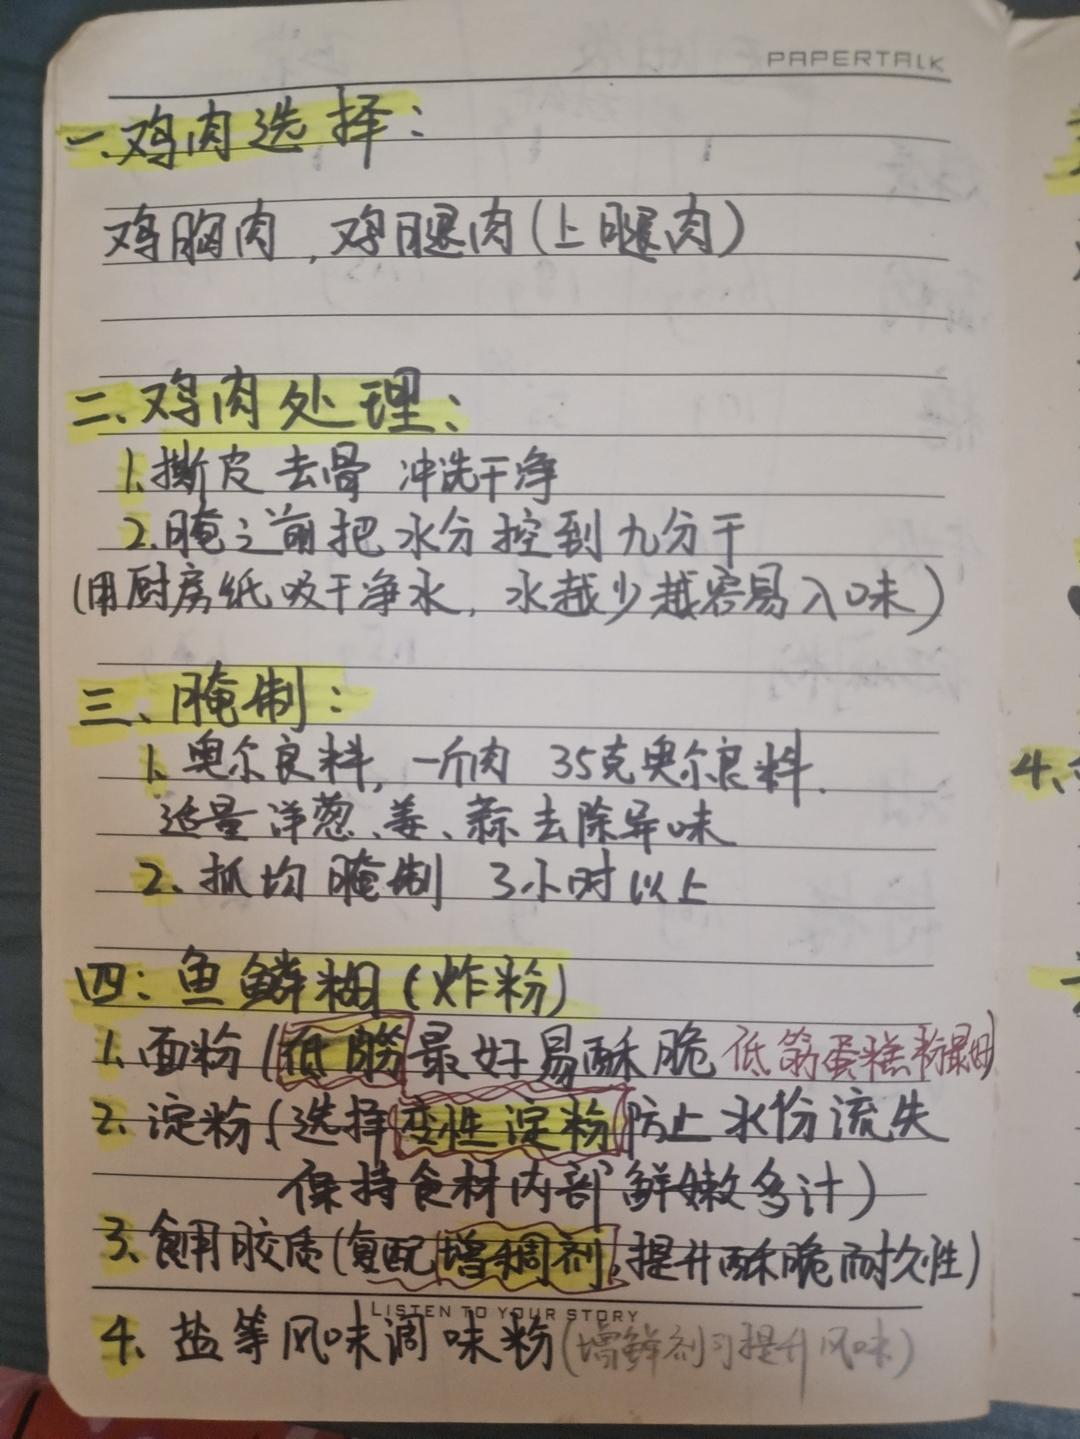 PAPERTALK
一.鸡肉选择:
鸡胸肉,鸡腿肉(上腿肉)
二、鸡肉处理:
1.撕皮去骨 冲洗干净
2.腌之前把水分控到九分干
(用厨房纸吸干净水,水越少越容易入味)
三、腌制:
1.奥尔良料,一斤肉 35克奥尔良料.
适量洋葱、姜、蒜去除异味
2.抓均腌制 3小时以上
四:鱼鳞糊(炸粉)
1.面粉(低筋最好易酥脆 低筋蛋糕粉最好)
2.淀粉(选择变性淀粉防止水份流失
保持食材内部鲜嫩多汁)
3.食用胶质(复配增稠剂,提升酥脆耐久性)
LISTEN TO YOUR STORY
4.盐等风味调味粉(增鲜剂可提升风味)
4.